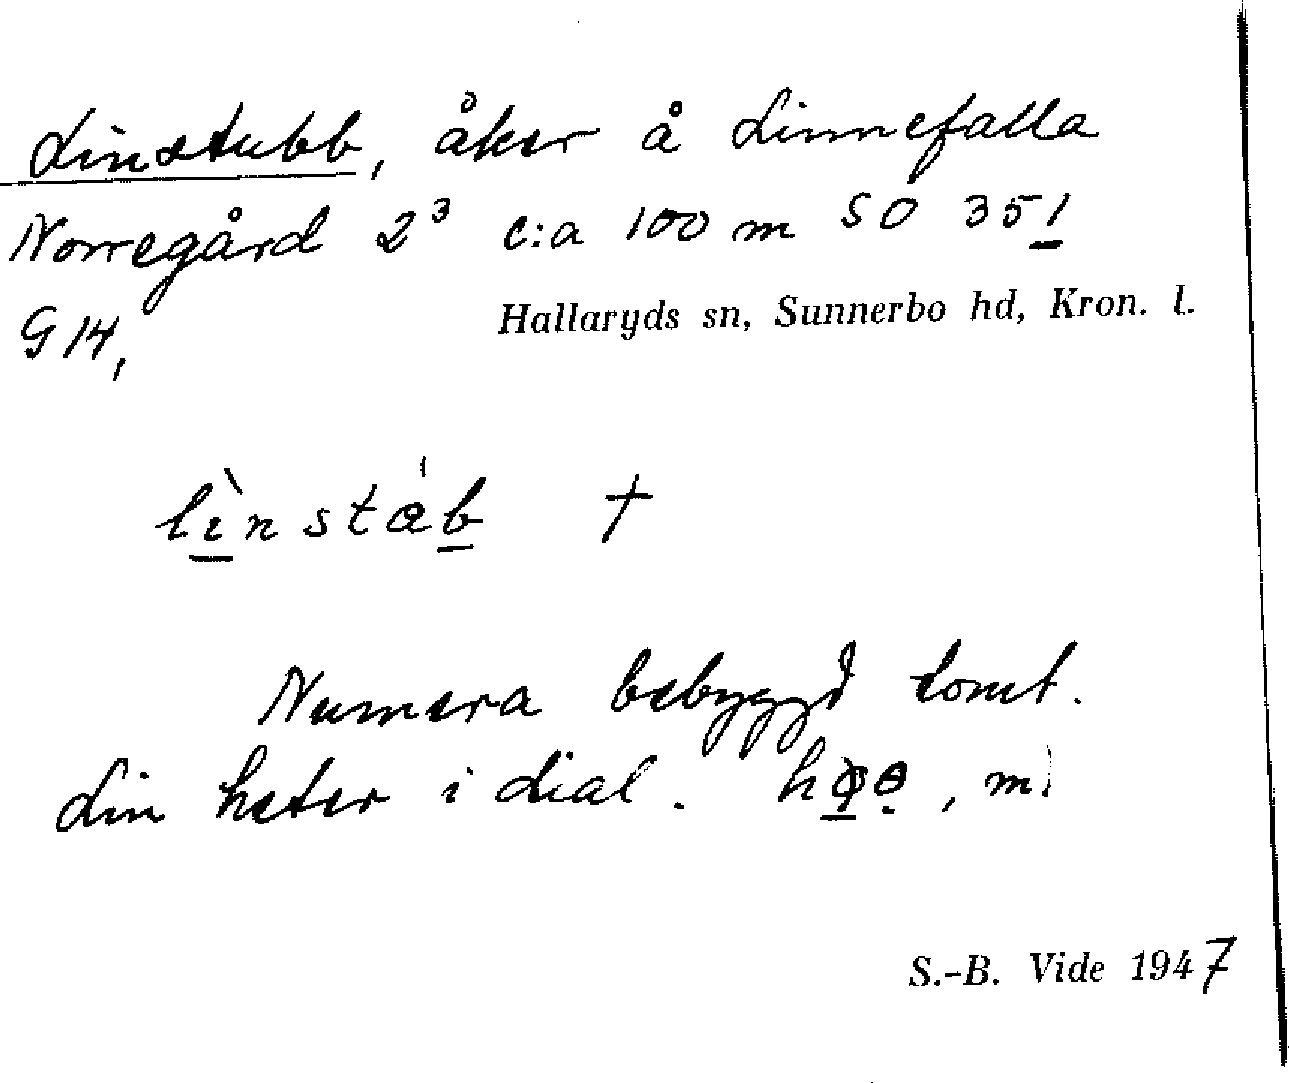 Linstubb, åker å Linnefalla
Norregård 2³ c:a 100 m SO 351
G 14,
Hallaryds sn, Sunnerbo hd, Kron. l.
lìnstàb †
Numera bebyggd tomt.
Lin heter i dial. , m
S.-B. Vide 1947